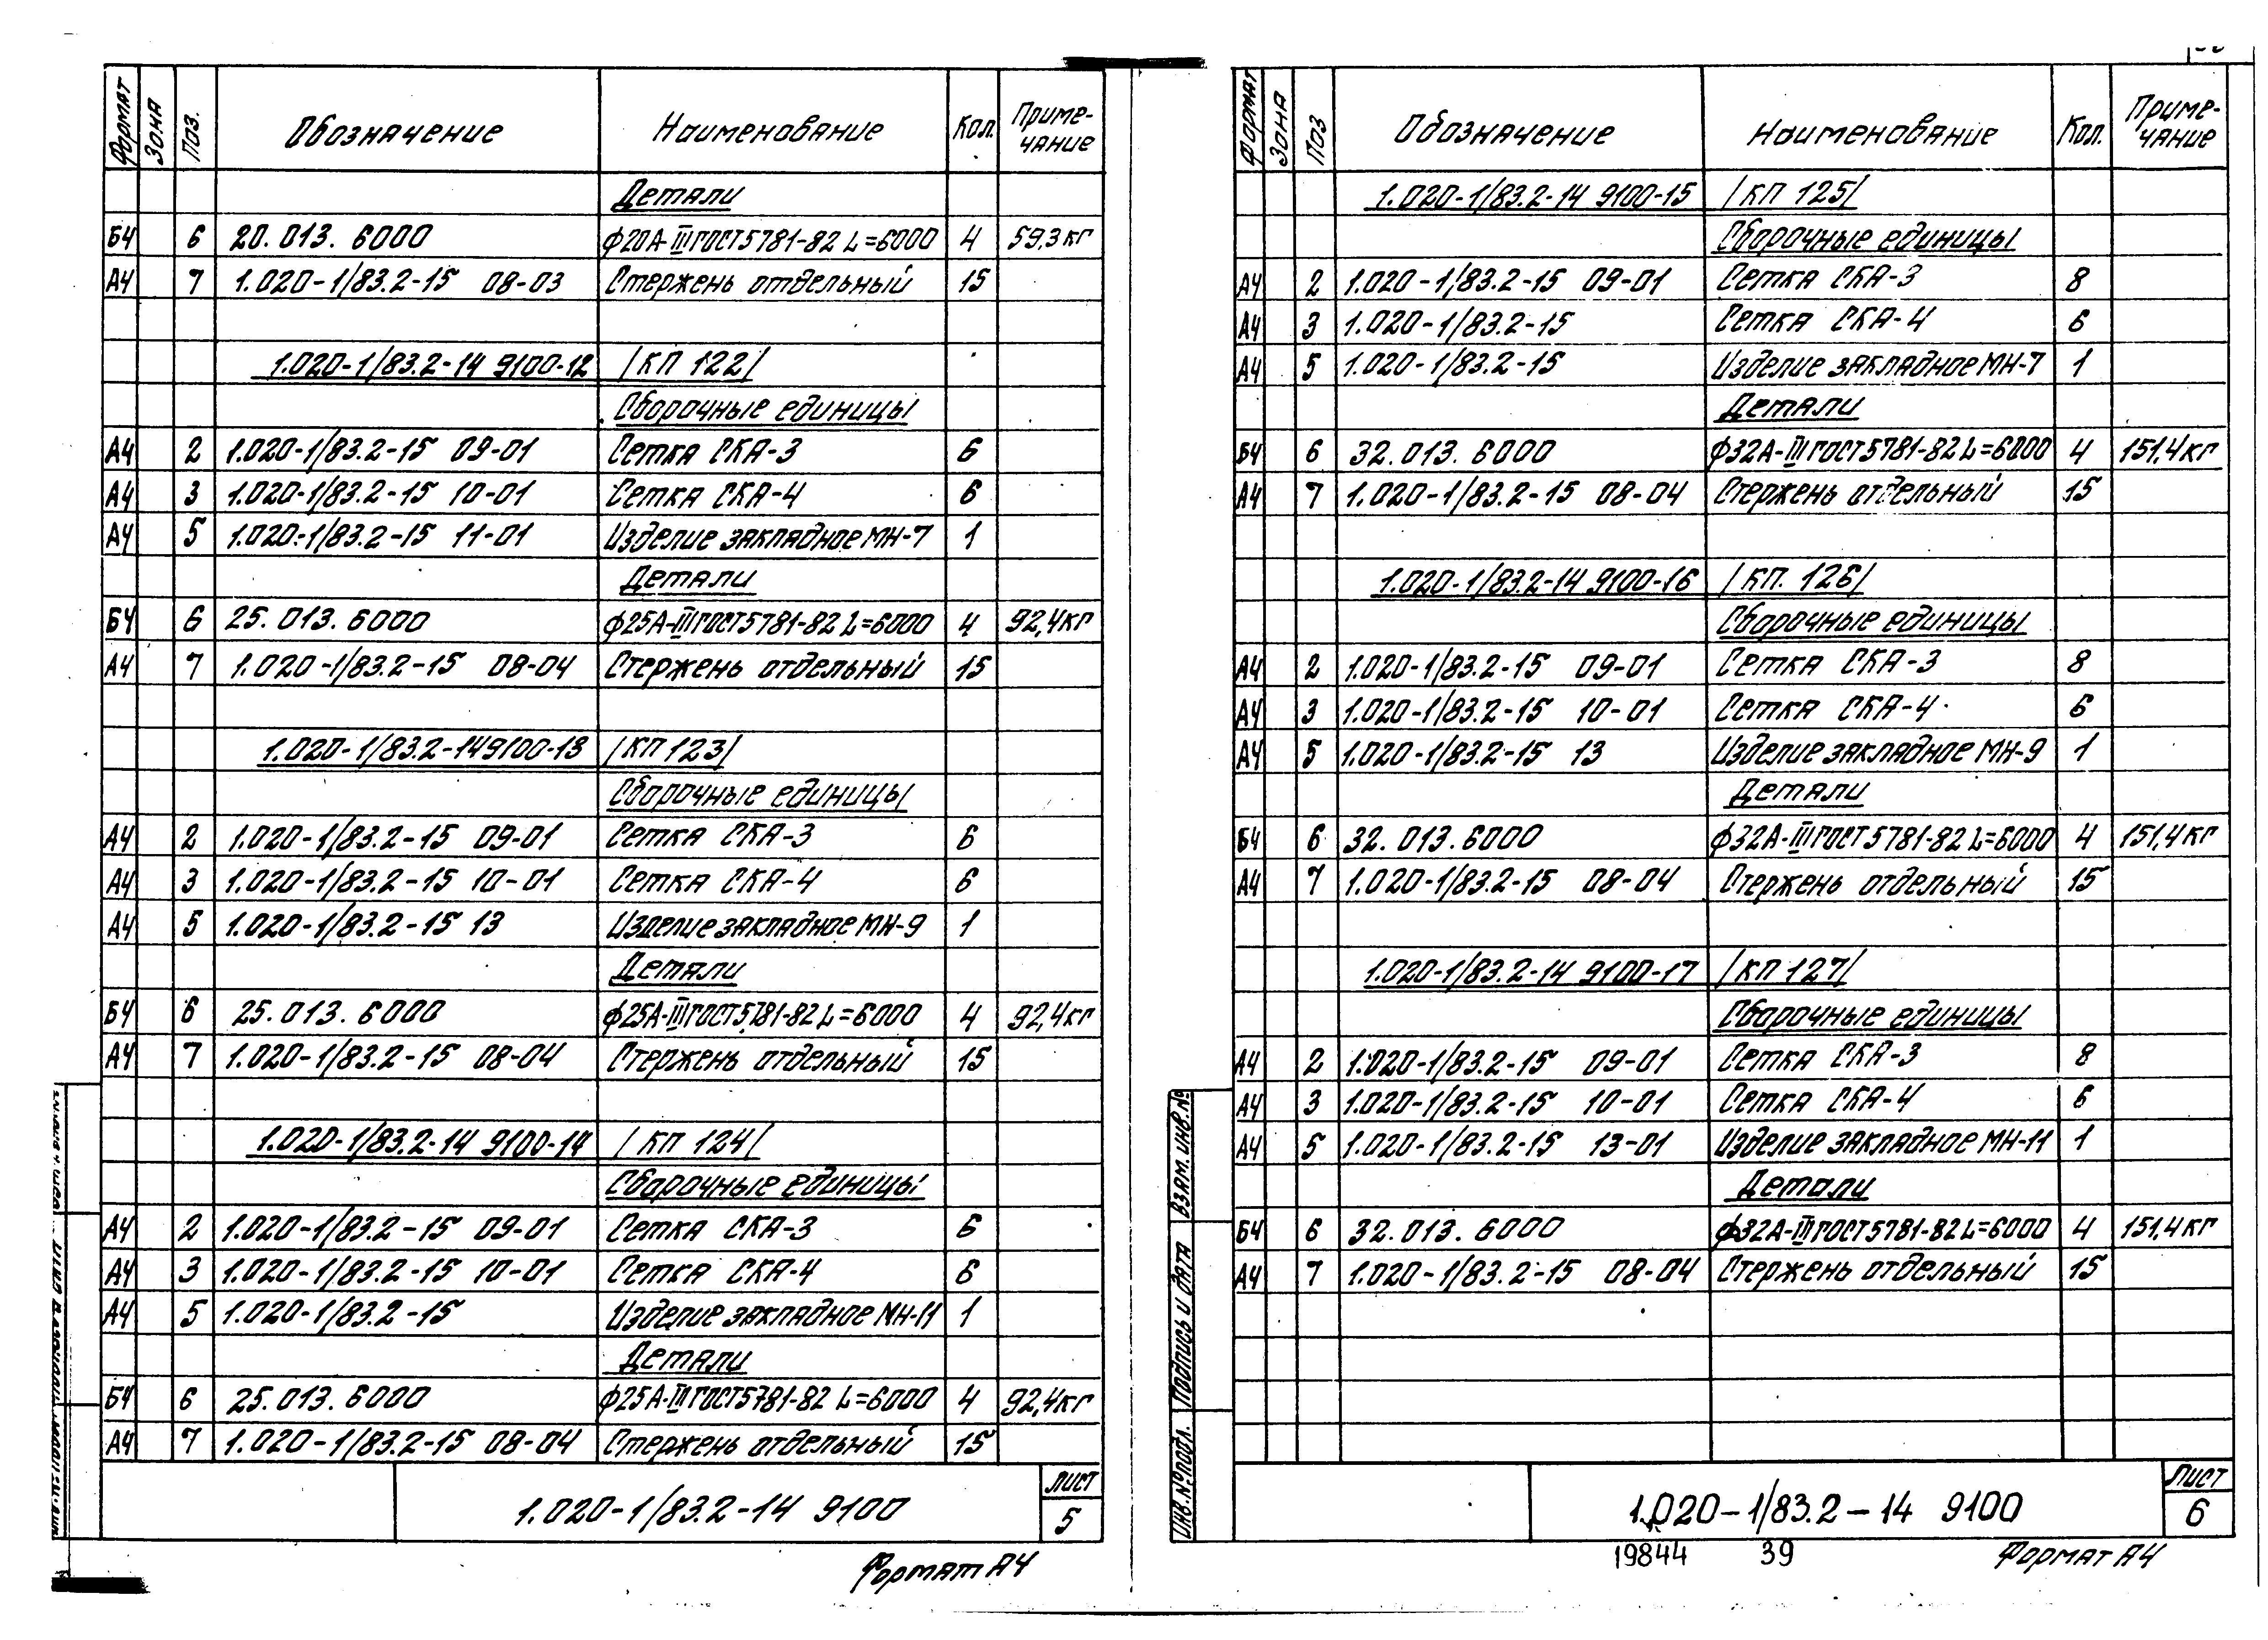 Формат Зона Поз. Обозначение Наименование Кол. Приме-
чание
Детали
Б4 6 20.013.6000 ф20А-III ГОСТ5781-82 L=6000 4 59,3кг
А4 7 1.020-1/83.2-15 08-03 Стержень отдельный 15
1.020-1/83.2-14 9100-12 /КП 122/
Сборочные единицы
А4 2 1.020-1/83.2-15 09-01 Сетка СКА-3 6
А4 3 1.020-1/83.2-15 10-01 Сетка СКА-4 6
А4 5 1.020-1/83.2-15 11-01 Изделие закладное МН-7 1
Детали
Б4 6 25.013.6000 ф25А-III ГОСТ5781-82 L=6000 4 92,4кг
А4 7 1.020-1/83.2-15 08-04 Стержень отдельный 15
1.020-1/83.2-14 9100-13 /КП 123/
Сборочные единицы
А4 2 1.020-1/83.2-15 09-01 Сетка СКА-3 6
А4 3 1.020-1/83.2-15 10-01 Сетка СКА-4 6
А4 5 1.020-1/83.2-15 13 Изделие закладное МН-9 1
Детали
Б4 6 25.013.6000 ф25А-III ГОСТ5781-82 L=6000 4 92,4кг
А4 7 1.020-1/83.2-15 08-04 Стержень отдельный 15
1.020-1/83.2-14 9100-14 /КП 124/
Сборочные единицы
А4 2 1.020-1/83.2-15 09-01 Сетка СКА-3 6
А4 3 1.020-1/83.2-15 10-01 Сетка СКА-4 6
А4 5 1.020-1/83.2-15 Изделие закладное МН-11 1
Детали
Б4 6 25.013.6000 ф25А-III ГОСТ5781-82 L=6000 4 92,4кг
А4 7 1.020-1/83.2-15 08-04 Стержень отдельный 15
1.020-1/83.2-14 9100
Лист
5
Формат А4
Формат Зона Поз Обозначение Наименование Кол. Приме-
чание
1.020-1/83.2-14 9100-15 /КП 125/
Сборочные единицы
А4 2 1.020-1/83.2-15 09-01 Сетка СКА-3 8
А4 3 1.020-1/83.2-15 Сетка СКА-4 6
А4 5 1.020-1/83.2-15 Изделие закладное МН-7 1
Детали
Б4 6 32.013.6000 ф32А-III ГОСТ5781-82 L=6000 4 151,4кг
А4 7 1.020-1/83.2-15 08-04 Стержень отдельный 15
1.020-1/83.2-14 9100-16 /КП. 126/
Сборочные единицы
А4 2 1.020-1/83.2-15 09-01 Сетка СКА-3 8
А4 3 1.020-1/83.2-15 10-01 Сетка СКА-4 6
А4 5 1.020-1/83.2-15 13 Изделие закладное МН-9 1
Детали
Б4 6 32.013.6000 ф32А-III ГОСТ5781-82 L=6000 4 151,4кг
А4 7 1.020-1/83.2-15 08-04 Стержень отдельный 15
1.020-1/83.2-14 9100-17 /КП 127/
Сборочные единицы
А4 2 1.020-1/83.2-15 09-01 Сетка СКА-3 8
А4 3 1.020-1/83.2-15 10-01 Сетка СКА-4 6
А4 5 1.020-1/83.2-15 13-01 Изделие закладное МН-11 1
Детали
Б4 6 32.013.6000 ф32А-III ГОСТ5781-82 L=6000 4 151,4кг
А4 7 1.020-1/83.2-15 08-04 Стержень отдельный 15
Инв.№подл. Подпись и дата Взам. инв.№
1.020-1/83.2-14 9100
Лист
6
19844 39
Формат А4